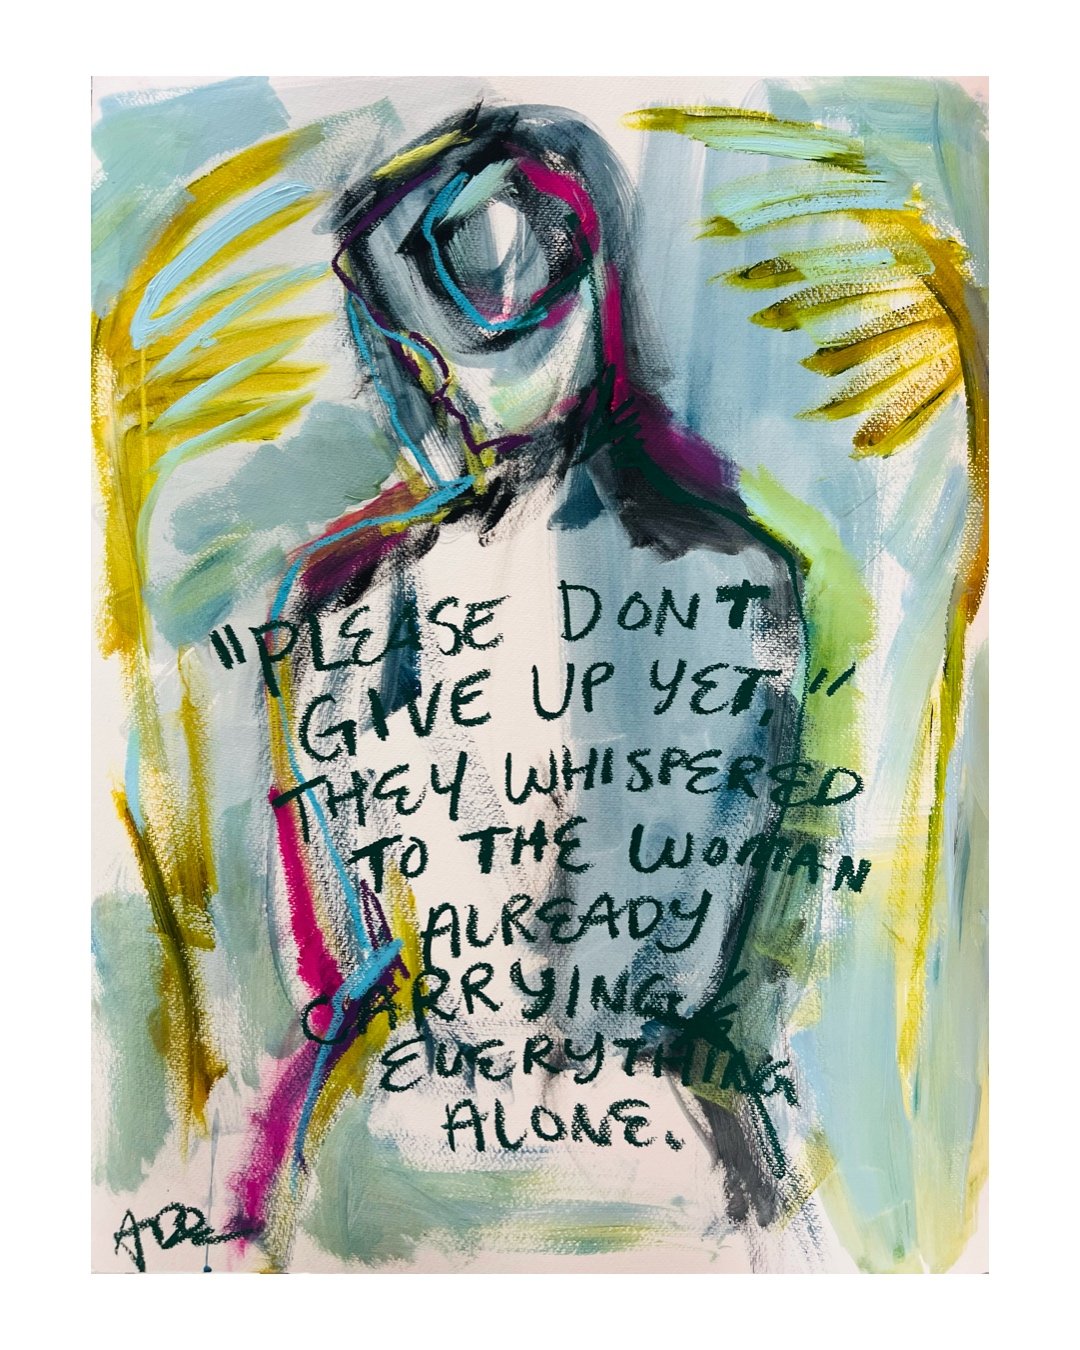 "PLEASE DONT
GIVE UP YET,"
THEY WHISPERED
TO THE WOMAN
ALREADY
CARRYING
EVERYTHING
ALONE.